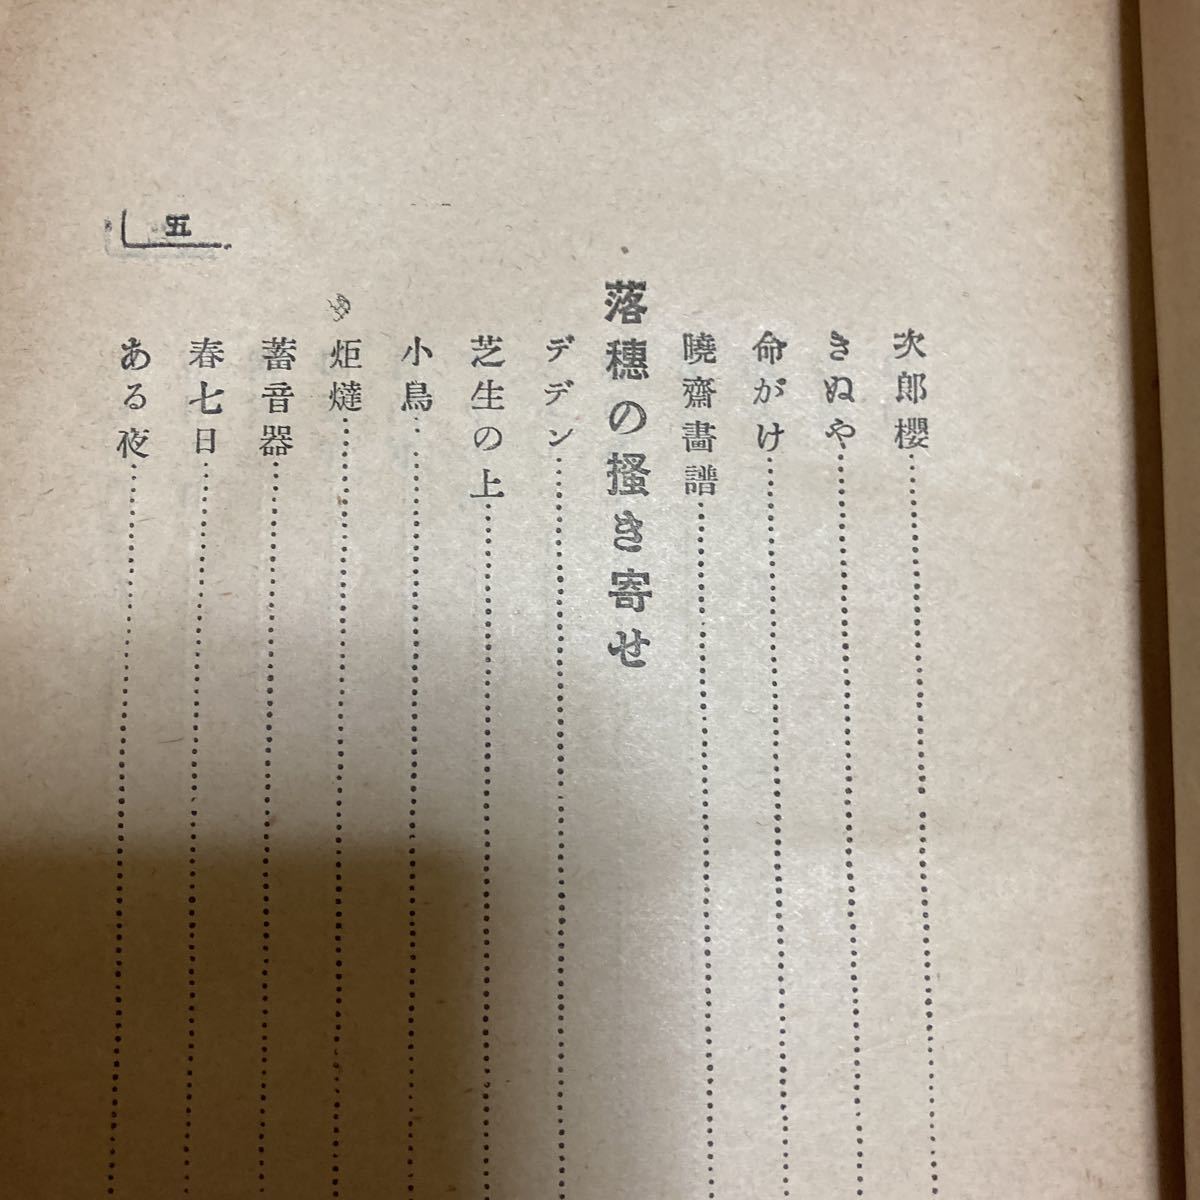 次郎櫻
きぬや
命がけ
曉齋畫譜
落穗の掻き寄せ
デデン
芝生の上
小鳥
炬燵
蓄音器
春七日
ある夜
五